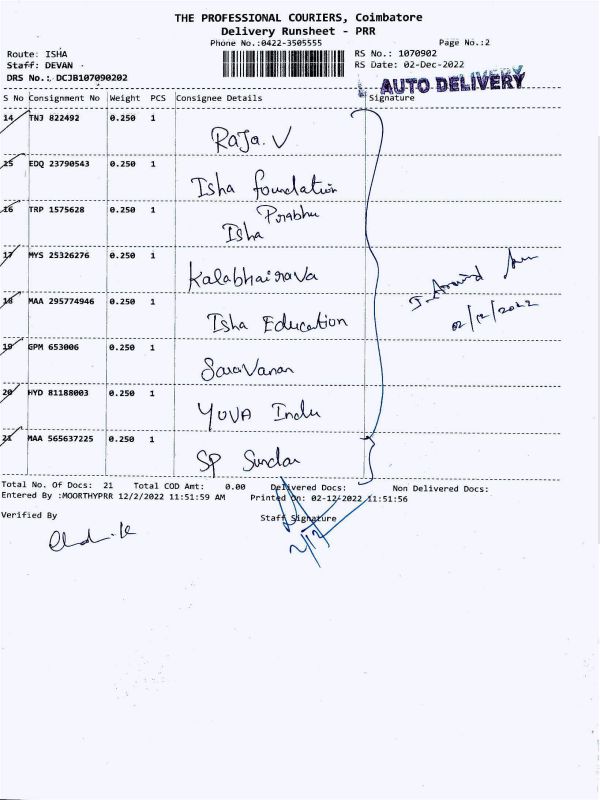 THE PROFESSIONAL COURIERS, Coimbatore
Delivery Runsheet - PRR
Phone No.:0422-3505555
Page No.:2
Route: ISHA
RS No.: 1070902
Staff: DEVAN
RS Date: 02-Dec-2022
DRS No.: DCJB107090202
AUTO DELIVERY
S No Consignment No Weight PCS Consignee Details Signature
14 TNJ 822492 0.250 1
Raja. V
15 EDQ 23790543 0.250 1
Isha foundation
16 TRP 1575628 0.250 1
Prabhu
Isha
17 MYS 25326276 0.250 1
Kalabhairava
18 MAA 295774946 0.250 1
02/12/2022
Isha Education
19 GPM 653006 0.250 1
Saravanan
20 HYD 81188003 0.250 1
YUVA Indu
21 MAA 565637225 0.250 1
SP Sundar
Total No. Of Docs: 21 Total COD Amt: 0.00 Delivered Docs: Non Delivered Docs:
Entered By :MOORTHYPRR 12/2/2022 11:51:59 AM Printed On: 02-12-2022 11:51:56
Verified By
Staff Signature
2/12